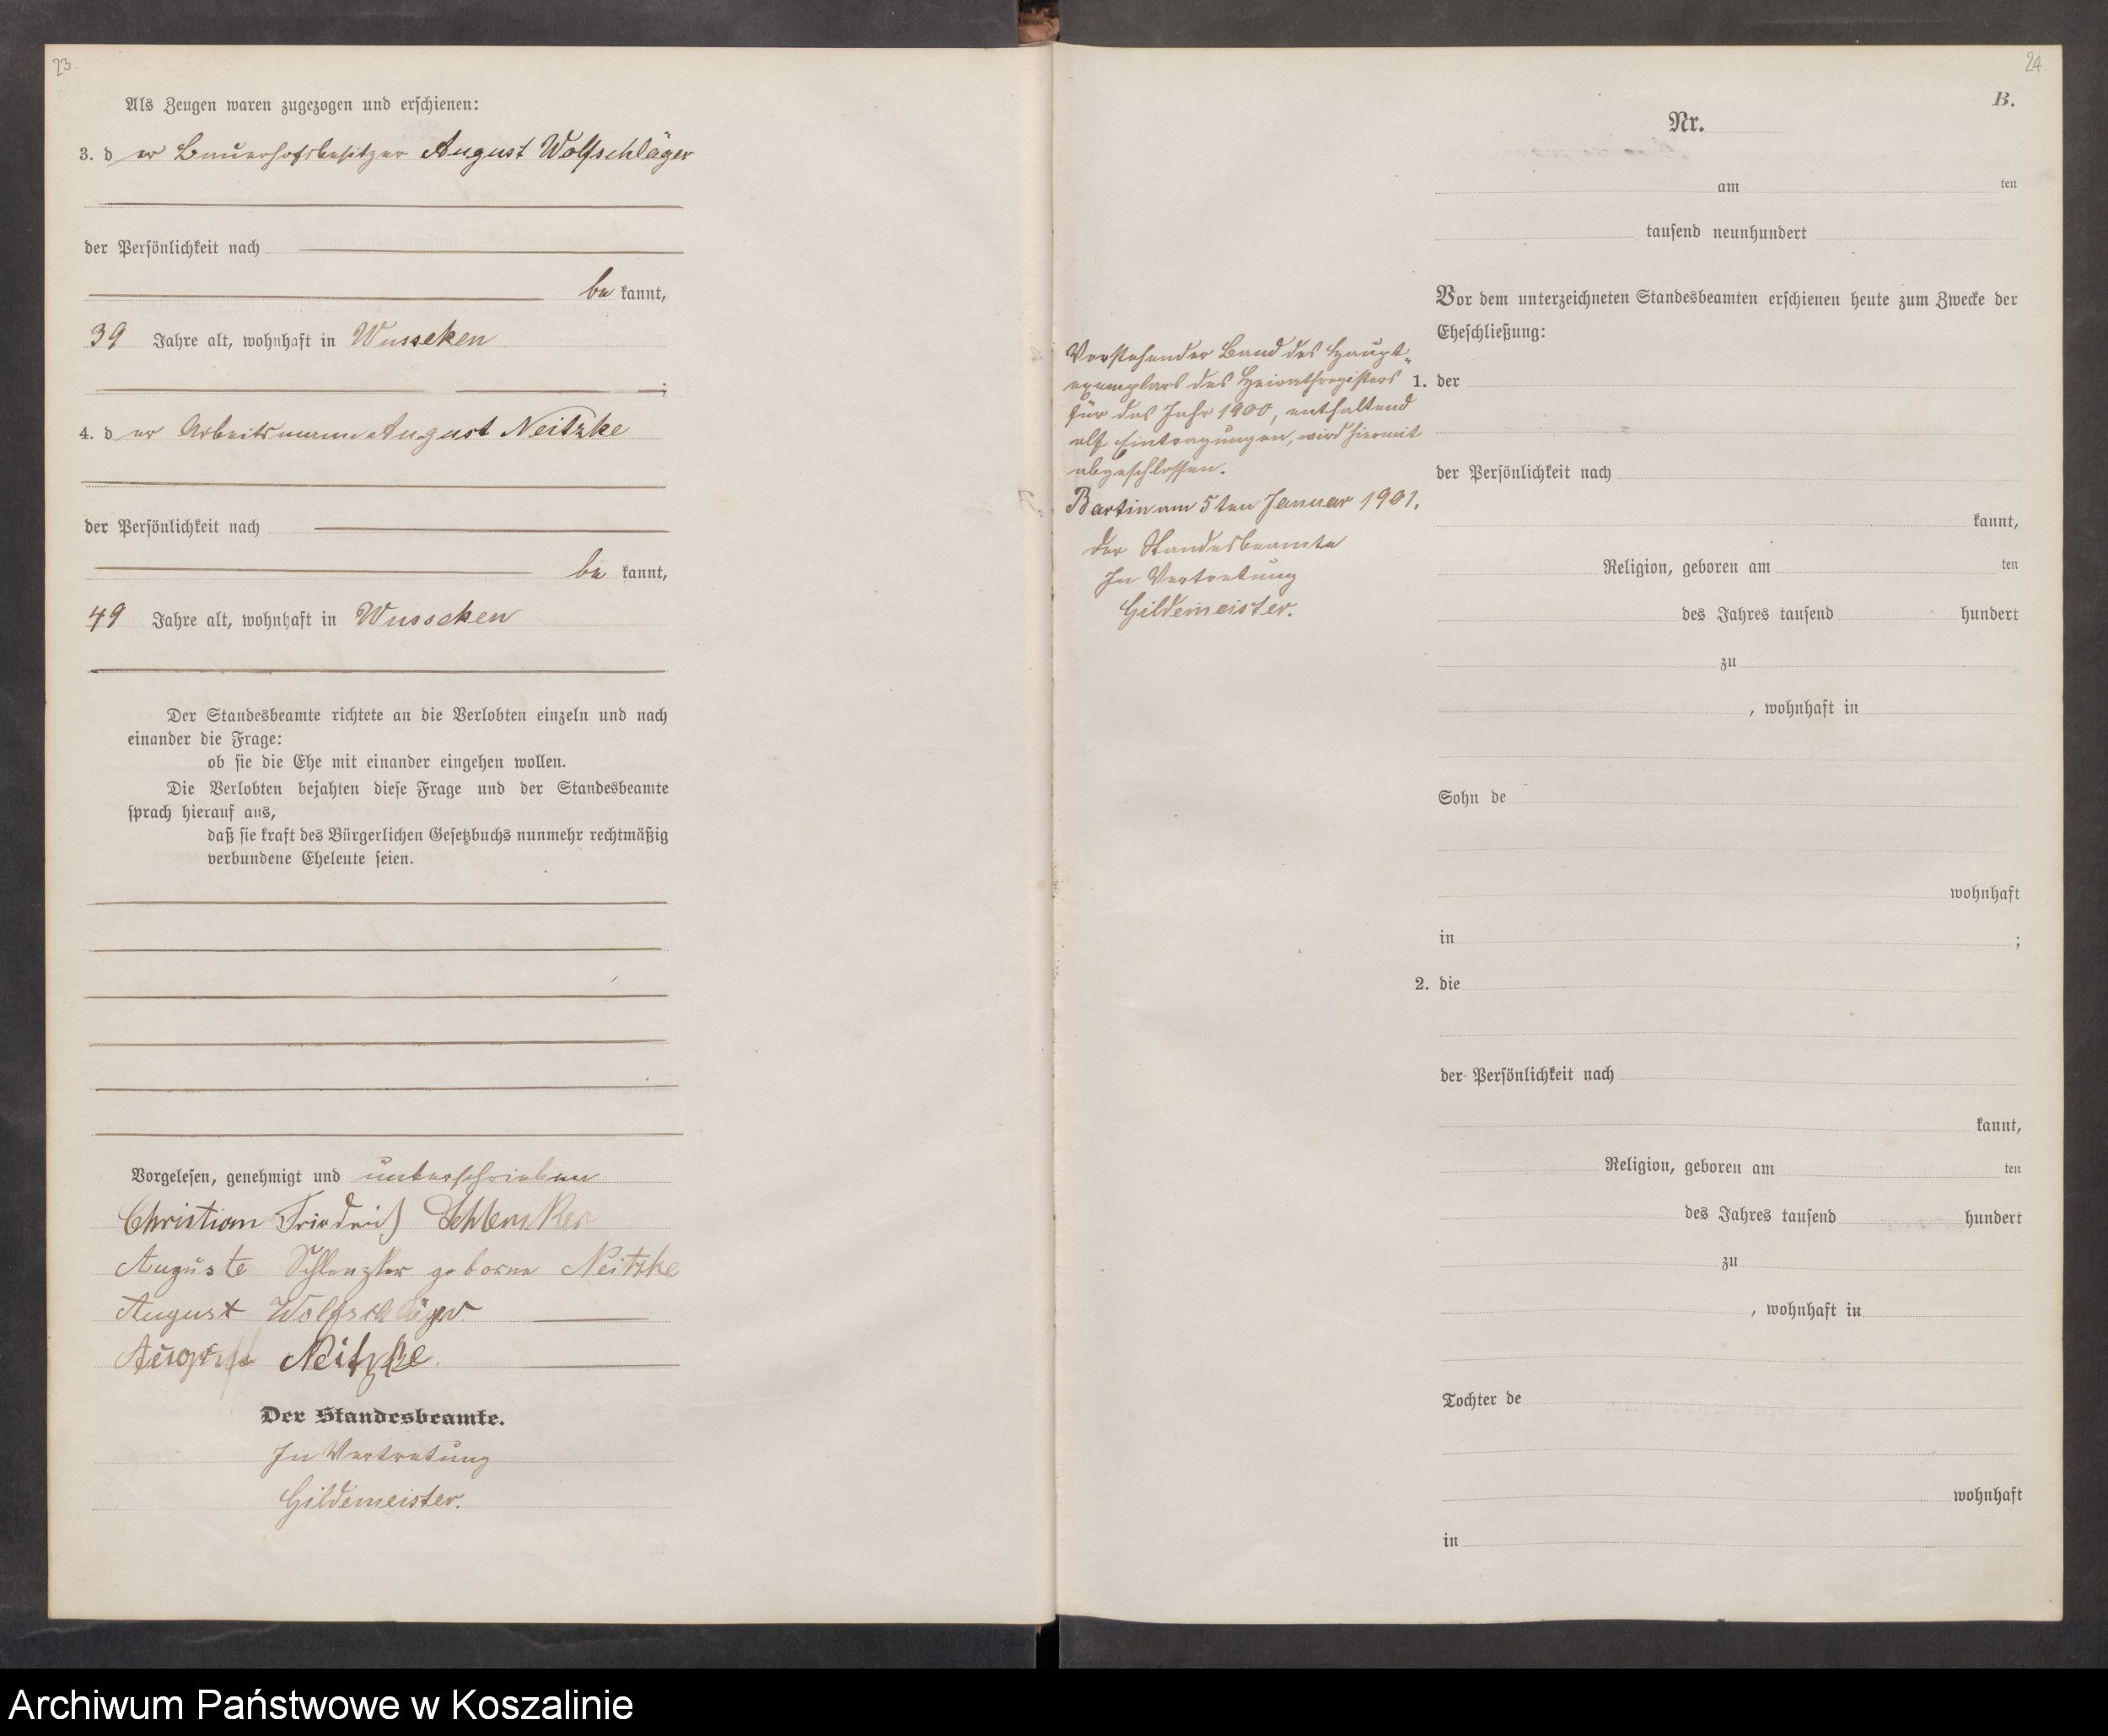 23.
Als Zeugen waren zugezogen und erschienen:
3. d er Bauerhofsbesitzer August Wolfschläger
der Persönlichkeit nach
be kannt,
39 Jahre alt, wohnhaft in Wusseken
;
4. d er Arbeitsmann August Neitzke
der Persönlichkeit nach
be kannt,
49 Jahre alt, wohnhaft in Wusseken
Der Standesbeamte richtete an die Verlobten einzeln und nach
einander die Frage:
ob sie die Ehe mit einander eingehen wollen.
Die Verlobten bejahten diese Frage und der Standesbeamte
sprach hierauf aus,
daß sie kraft des Bürgerlichen Gesetzbuchs nunmehr rechtmäßig
verbundene Eheleute seien.
Vorgelesen, genehmigt und unterschrieben
Christian Friedrich
Auguste Schlenzker geborne Neitzke
August Wolfschläger
August Neitzke
Der Standesbeamte.
In Vertretung
Gildemeister.
24
B.
Nr.
am ten
tausend neunhundert
Vor dem unterzeichneten Standesbeamten erschienen heute zum Zwecke der
Eheschließung:
1. der
der Persönlichkeit nach
kannt,
Religion, geboren am ten
des Jahres tausend hundert
zu
, wohnhaft in
Sohn de
wohnhaft
in ;
2. die
der Persönlichkeit nach
kannt,
Religion, geboren am ten
des Jahres tausend hundert
zu
, wohnhaft in
Tochter de
wohnhaft
in
Vorstehender Band des Haupt-
exemplars des Heirathsregisters
für das Jahr 1900, enthaltend
elf Eintragungen, wird hiermit
abgeschlossen.
Bartin am 5ten Januar 1901.
Der Standesbeamte
In Vertretung
Gildemeister.
Archiwum Państwowe w Koszalinie